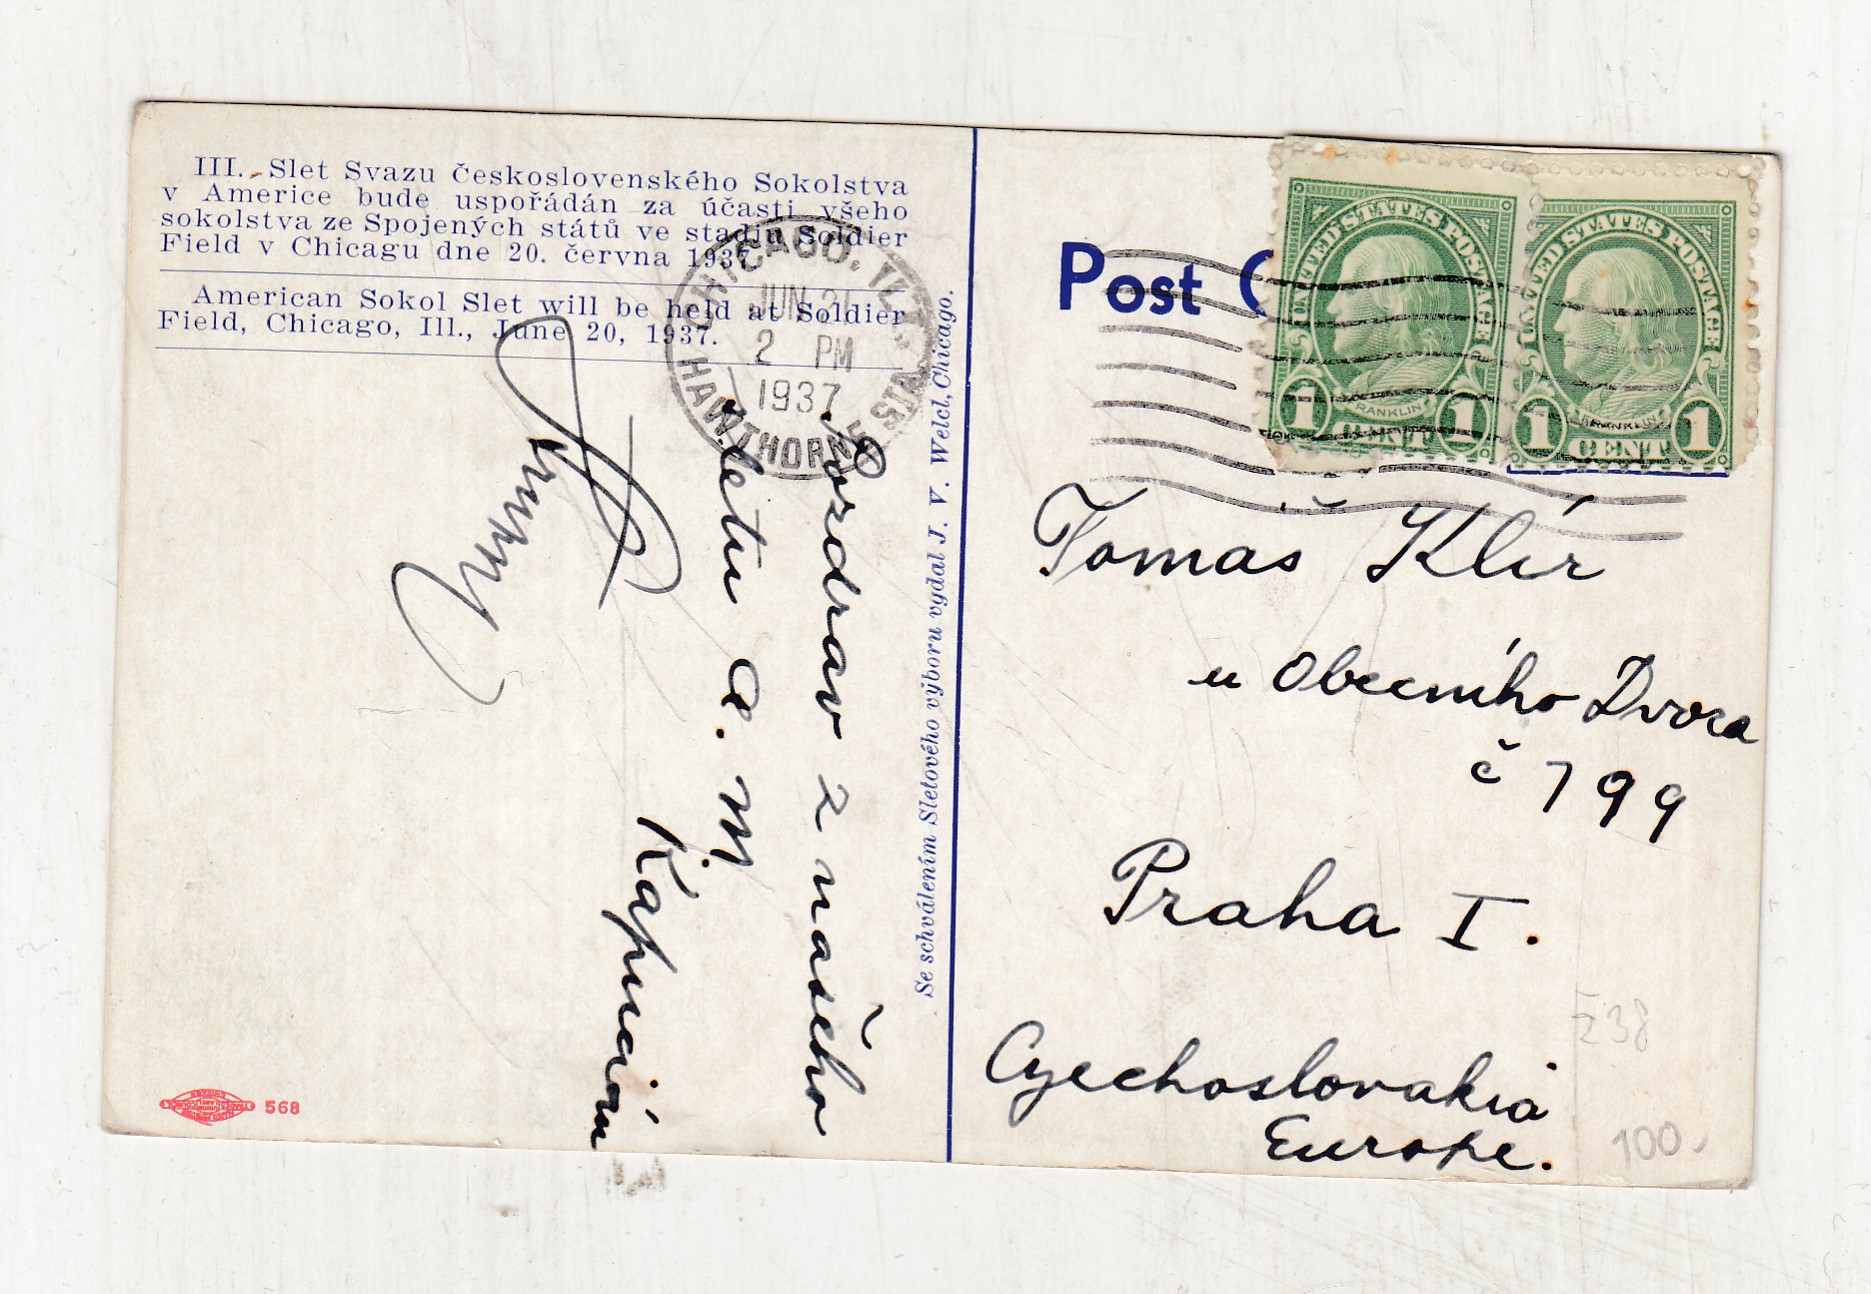 III. Slet Svazu československého Sokolstva
v Americe bude uspořádán za účasti všeho
sokolstva ze Spojených států ve stadiu Soldier
Field v Chicagu dne 20. června 1937.
American Sokol Slet will be held at Soldier
Field, Chicago, Ill., June 20, 1937.
CHICAGO, ILL.
JUN 21
2 PM
1937
HAWTHORNE STA.
Pozdrav z našeho
sletu a. m.
Se schválením Sletového výboru vydal J. V. Welcl, Chicago.
568
Post
UNITED STATES POSTAGE
FRANKLIN
1 CENT 1
UNITED STATES POSTAGE
FRANKLIN
1 CENT 1
Tomaš Klír
u Obecního Dvora
č 799
Praha I.
Czechoslovakia
Europe.
100.